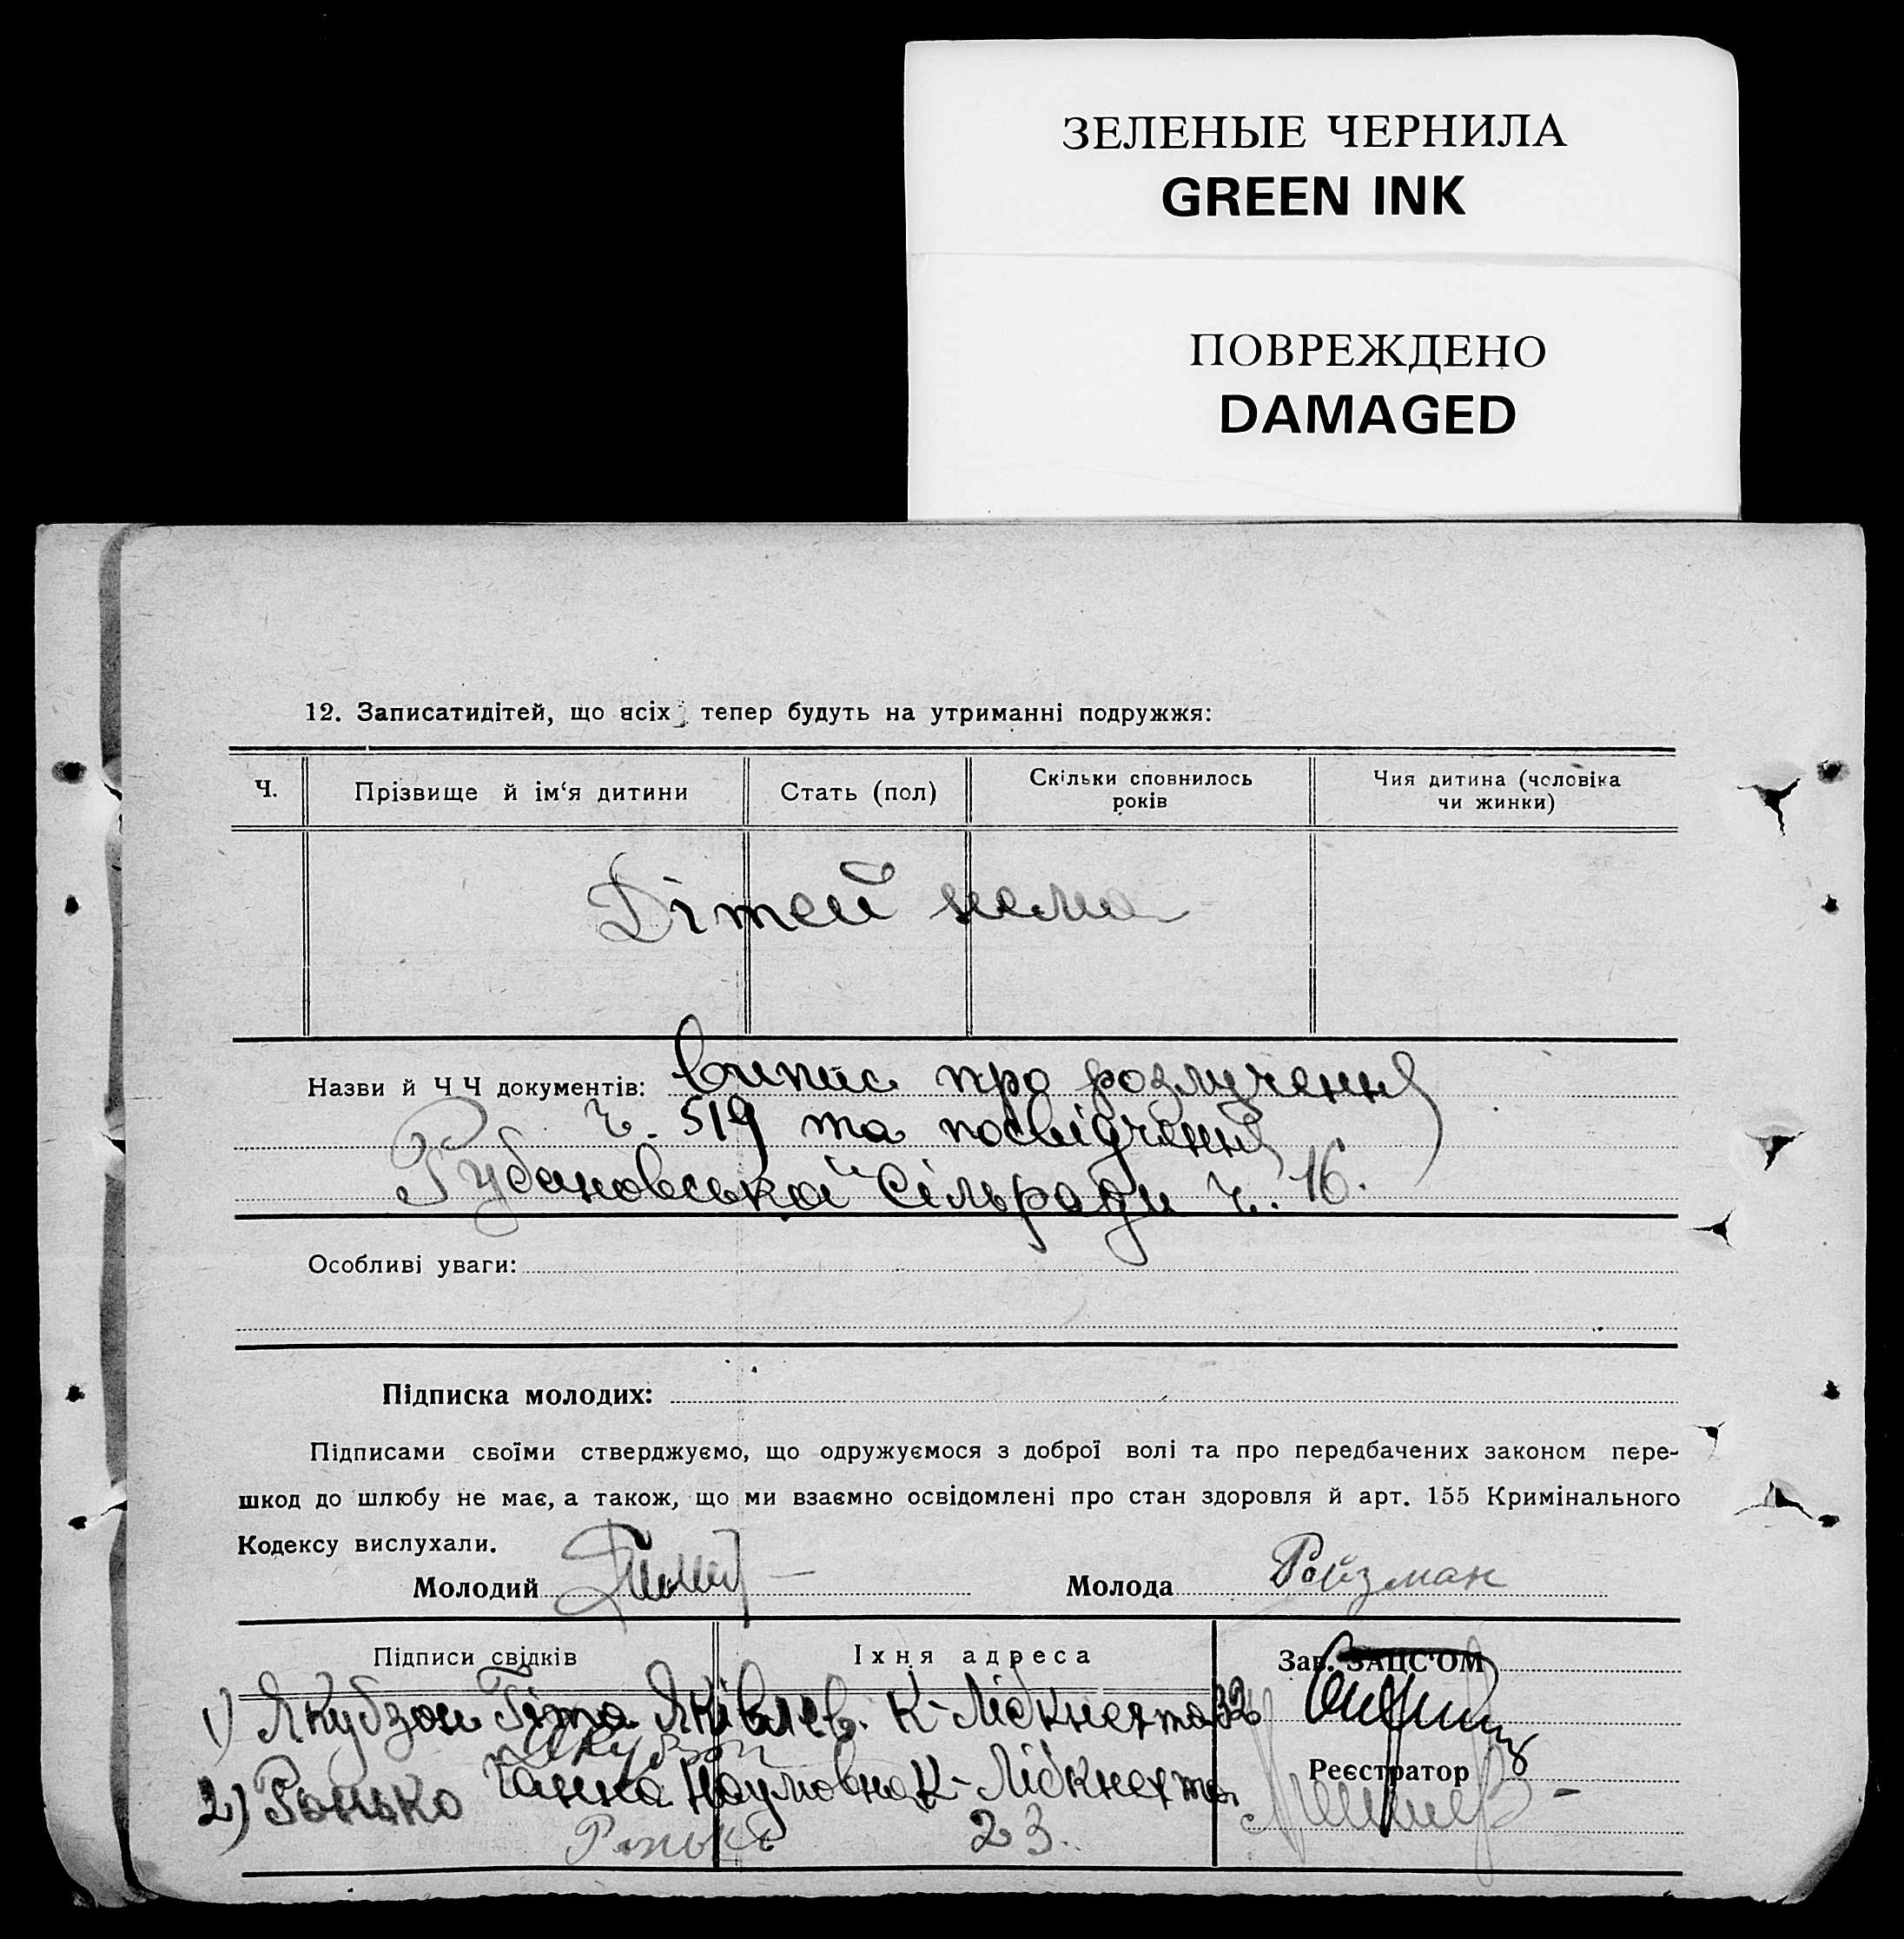 ЗЕЛЕНЫЕ ЧЕРНИЛА
GREEN INK
ПОВРЕЖДЕНО
DAMAGED
12. Записатидітей, що всіх тепер будуть на утриманні подружжя:
Ч.
Прізвище й ім‘я дитини
Стать (пол)
Скільки сповнилось
років
Чия дитина (чоловіка
чи жинки)
Дітей нема
Назви й Ч Ч документів: випис про розлучення
ч. 519 та посвідчення
Рубановської Сільради ч. 16.
Особливі уваги:
Підписка молодих:
Підписами своїми стверджуємо, що одружуємося з доброї волі та про передбачених законом пере-
шкод до шлюбу не має, а також, що ми взаємно освідомлені про стан здоровля й арт. 155 Кримінального
Кодексу вислухали.
Молодий
Молода Ройзман
Підписи свідків
Їхня адреса
Зав. ЗАПС‘ОМ
1) Якубзон Гіта Яківлев. К-Лібкнехта 32
Якубзон
Реєстратор
2) Ронько Ганна Наумовна К-Лібкнехта
Ронько 23.